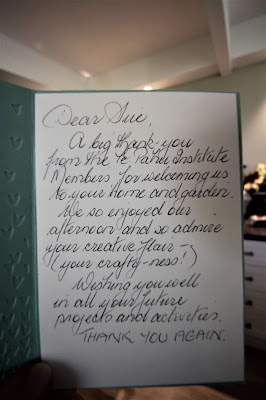 Dear Sue,
A big thank-you
from the Te Pahu Institute
Members for welcoming us
to your home and garden.
We so enjoyed our
afternoon and so admire
your creative flair -
(your crafty-ness!)
Wishing you well
in all your future
projects and activities.
THANK YOU AGAIN.